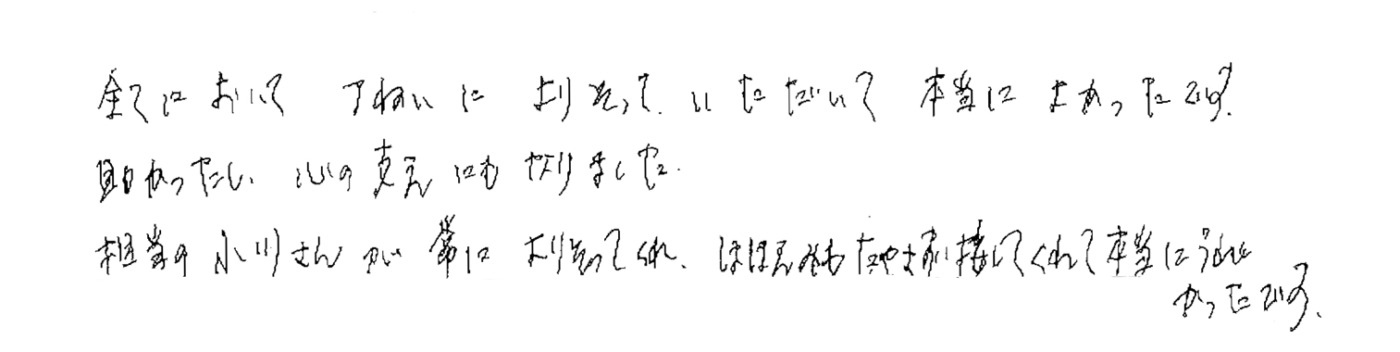 全てにおいて ていねいに よりそって、いただいて 本当に よかったです。
助かったし、心の支えにもなりました。
担当の小川さんが 常に よりそってくれ、ほほえみもたやさず接してくれて本当にうれし
かったです。